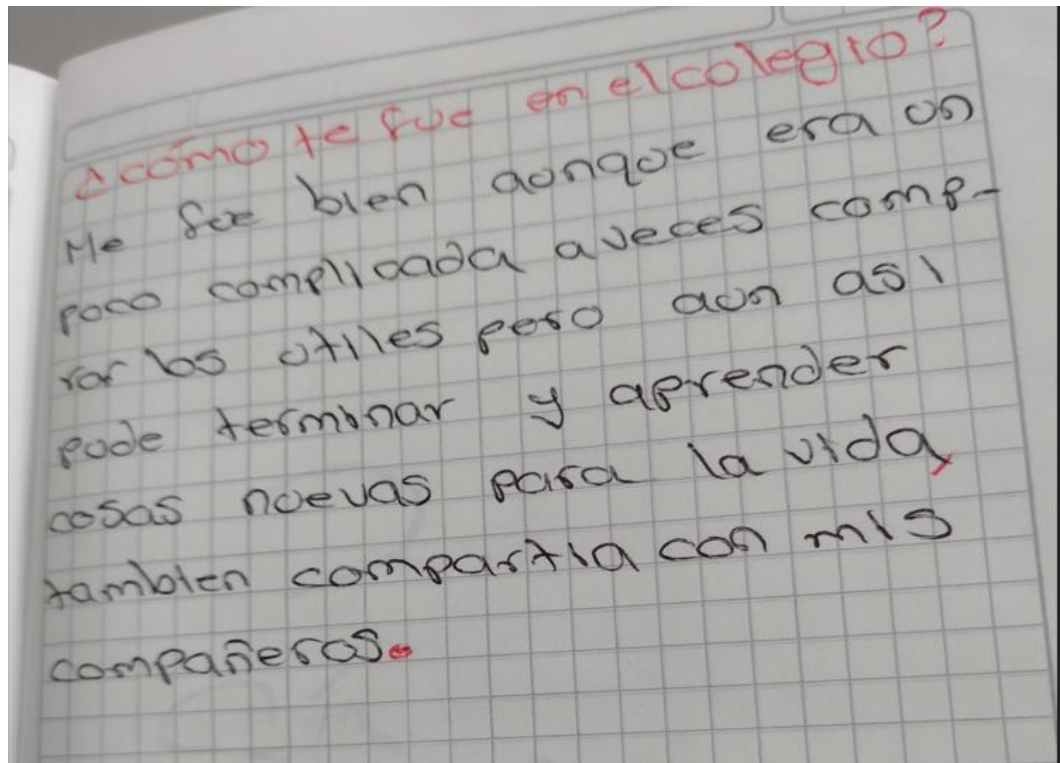 ¿cómo te fue en el colegio?
Me fue bien aunque era un
poco complicada aveces comp-
rar los utiles pero aun asi
pude terminar y aprender
cosas nuevas para la vida,
tambien compartia con mis
compañeros.